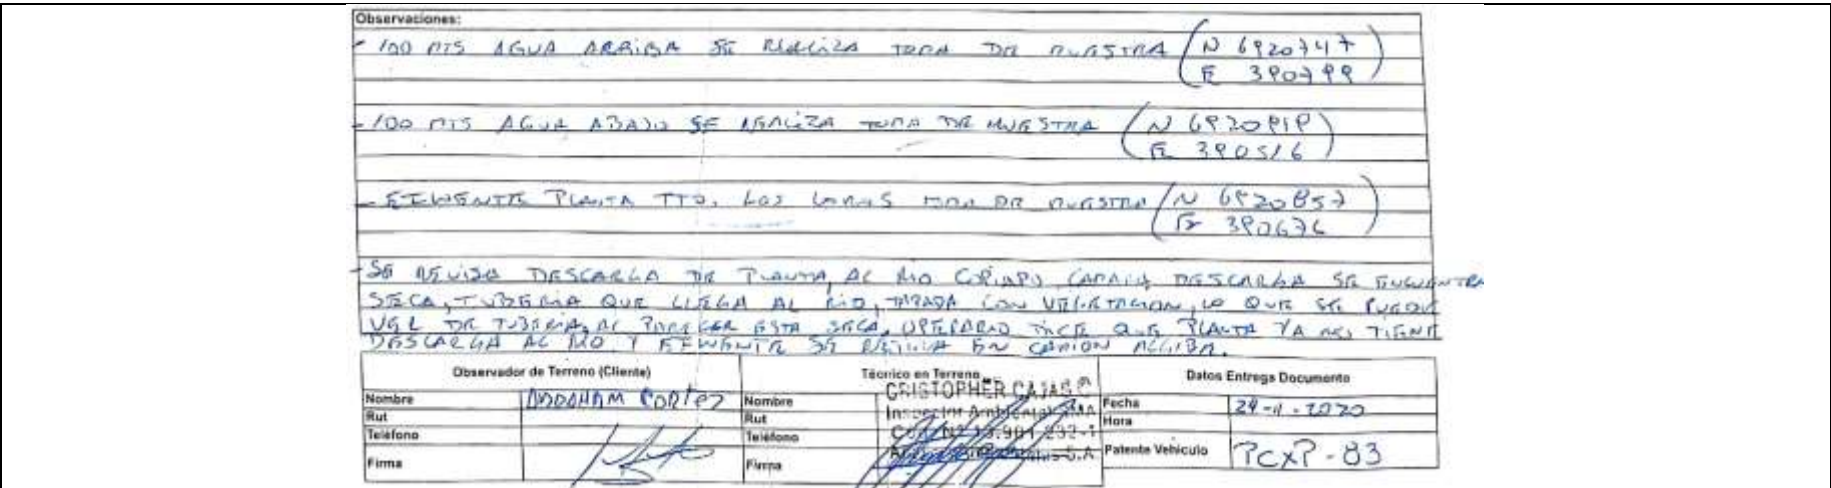 Observaciones:
- 100 MTS AGUA ARRIBA SE REALIZA TOMA DE MUESTRA (N 6920747
E 390799)
- 100 MTS AGUA ABAJO SE REALIZA TOMA DE MUESTRA (N 6920919)
E 390516)
- EFLUENTE PLANTA TTO. LOS LOROS TOMA DE MUESTRA (N 6920857
E 390676
- SE REVISA DESCARGA DE PLANTA, AL RIO COPIAPO, DESCARGA SE ENCUENTRA
SECA, TUBERIA QUE LLEGA AL RIO, TAPADA CON VEGETACION, LO QUE SE PUEDE
VER DE TUBERIA, AL PARECER ESTA SECA, OPERARIO DICE QUE PLANTA YA NO TIENE
DESCARGA AL RIO Y EFLUENTE SE RETIRA EN CAMION ALJIBE.
Observador de Terreno (Cliente) Técnico en Terreno Datos Entrega Documento
CRISTOPHER CAJAS C
Nombre ABRAHAM CORTEZ Nombre Inspector Ambiental SMA Fecha 24-11-2020
Rut Rut Hora
Teléfono Teléfono
Firma Firma S.A Patente Vehículo PCXP-83